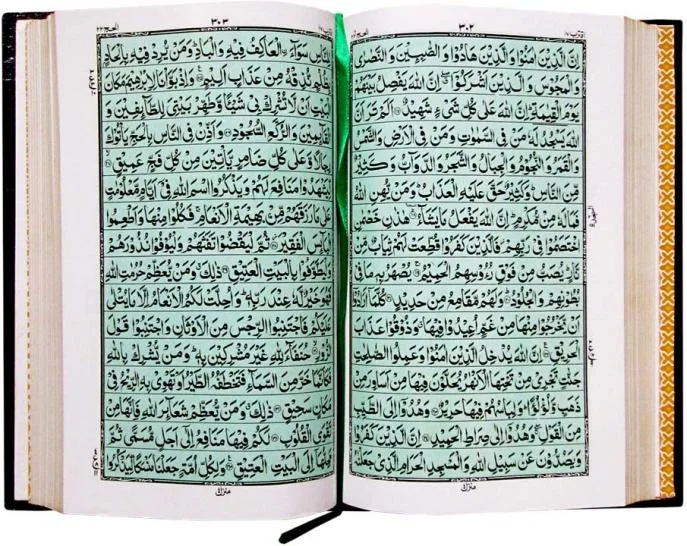 ٣٠٢
اِنَّ الَّذِيْنَ اٰمَنُوْا وَالَّذِيْنَ هَادُوْا وَالصّٰبِـِٕيْنَ وَالنَّصٰرٰى
وَالْمَجُوْسَ وَالَّذِيْنَ اَشْرَكُوْٓا ۖ اِنَّ اللّٰهَ يَفْصِلُ بَيْنَهُمْ
يَوْمَ الْقِيٰمَةِ ؕ اِنَّ اللّٰهَ عَلٰى كُلِّ شَيْءٍ شَهِيْدٌ ۝ اَلَمْ تَرَ اَنَّ
اللّٰهَ يَسْجُدُ لَهٗ مَنْ فِي السَّمٰوٰتِ وَمَنْ فِي الْاَرْضِ وَالشَّمْسُ
وَالْقَمَرُ وَالنُّجُوْمُ وَالْجِبَالُ وَالشَّجَرُ وَالدَّوَآبُّ وَكَثِيْرٌ
مِّنَ النَّاسِ ؕ وَكَثِيْرٌ حَقَّ عَلَيْهِ الْعَذَابُ ؕ وَمَنْ يُّهِنِ اللّٰهُ
فَمَا لَهٗ مِنْ مُّكْرِمٍ ؕ اِنَّ اللّٰهَ يَفْعَلُ مَا يَشَآءُ ۝ هٰذٰنِ خَصْمٰنِ
اخْتَصَمُوْا فِيْ رَبِّهِمْ ؗ فَالَّذِيْنَ كَفَرُوْا قُطِّعَتْ لَهُمْ ثِيَابٌ مِّنْ
نَّارٍ ؕ يُصَبُّ مِنْ فَوْقِ رُءُوْسِهِمُ الْحَمِيْمُ ۝ يُصْهَرُ بِهٖ مَا فِيْ
بُطُوْنِهِمْ وَالْجُلُوْدُ ۝ وَلَهُمْ مَّقَامِعُ مِنْ حَدِيْدٍ ۝ كُلَّمَآ اَرَادُوْٓا
اَنْ يَّخْرُجُوْا مِنْهَا مِنْ غَمٍّ اُعِيْدُوْا فِيْهَا ۗ وَذُوْقُوْا عَذَابَ
الْحَرِيْقِ ۝ اِنَّ اللّٰهَ يُدْخِلُ الَّذِيْنَ اٰمَنُوْا وَعَمِلُوا الصّٰلِحٰتِ
جَنّٰتٍ تَجْرِيْ مِنْ تَحْتِهَا الْاَنْهٰرُ يُحَلَّوْنَ فِيْهَا مِنْ اَسَاوِرَ مِنْ
ذَهَبٍ وَّلُؤْلُؤًا ؕ وَلِبَاسُهُمْ فِيْهَا حَرِيْرٌ ۝ وَهُدُوْٓا اِلَى الطَّيِّبِ
مِنَ الْقَوْلِ ۚ وَهُدُوْٓا اِلٰى صِرَاطِ الْحَمِيْدِ ۝ اِنَّ الَّذِيْنَ كَفَرُوْا
وَيَصُدُّوْنَ عَنْ سَبِيْلِ اللّٰهِ وَالْمَسْجِدِ الْحَرَامِ الَّذِيْ جَعَلْنٰهُ
الحج ٢٢ ٣٠٣
لِلنَّاسِ سَوَآءَ ۨالْعَاكِفُ فِيْهِ وَالْبَادِ ؕ وَمَنْ يُّرِدْ فِيْهِ بِاِلْحَادٍۭ
بِظُلْمٍ نُّذِقْهُ مِنْ عَذَابٍ اَلِيْمٍ ۝ وَاِذْ بَوَّاْنَا لِاِبْرٰهِيْمَ مَكَانَ
الْبَيْتِ اَنْ لَّا تُشْرِكْ بِيْ شَيْـًٔا وَّطَهِّرْ بَيْتِيَ لِلطَّآئِفِيْنَ وَ
الْقَآئِمِيْنَ وَالرُّكَّعِ السُّجُوْدِ ۝ وَاَذِّنْ فِي النَّاسِ بِالْحَجِّ يَاْتُوْكَ
رِجَالًا وَّعَلٰى كُلِّ ضَامِرٍ يَّاْتِيْنَ مِنْ كُلِّ فَجٍّ عَمِيْقٍ ۝
لِّيَشْهَدُوْا مَنَافِعَ لَهُمْ وَيَذْكُرُوا اسْمَ اللّٰهِ فِيْٓ اَيَّامٍ مَّعْلُوْمٰتٍ
عَلٰى مَا رَزَقَهُمْ مِّنْۢ بَهِيْمَةِ الْاَنْعَامِ ۚ فَكُلُوْا مِنْهَا وَاَطْعِمُوا
الْبَآئِسَ الْفَقِيْرَ ۝ ثُمَّ لْيَقْضُوْا تَفَثَهُمْ وَلْيُوْفُوْا نُذُوْرَهُمْ
وَلْيَطَّوَّفُوْا بِالْبَيْتِ الْعَتِيْقِ ۝ ذٰلِكَ ۗ وَمَنْ يُّعَظِّمْ حُرُمٰتِ اللّٰهِ
فَهُوَ خَيْرٌ لَّهٗ عِنْدَ رَبِّهٖ ؕ وَاُحِلَّتْ لَكُمُ الْاَنْعَامُ اِلَّا مَا يُتْلٰى
عَلَيْكُمْ فَاجْتَنِبُوا الرِّجْسَ مِنَ الْاَوْثَانِ وَاجْتَنِبُوْا قَوْلَ
الزُّوْرِ ۝ حُنَفَآءَ لِلّٰهِ غَيْرَ مُشْرِكِيْنَ بِهٖ ؕ وَمَنْ يُّشْرِكْ بِاللّٰهِ
فَكَاَنَّمَا خَرَّ مِنَ السَّمَآءِ فَتَخْطَفُهُ الطَّيْرُ اَوْ تَهْوِيْ بِهِ الرِّيْحُ فِيْ
مَكَانٍ سَحِيْقٍ ۝ ذٰلِكَ ۗ وَمَنْ يُّعَظِّمْ شَعَآئِرَ اللّٰهِ فَاِنَّهَا مِنْ
تَقْوَى الْقُلُوْبِ ۝ لَكُمْ فِيْهَا مَنَافِعُ اِلٰٓى اَجَلٍ مُّسَمًّى ثُمَّ
مَحِلُّهَآ اِلَى الْبَيْتِ الْعَتِيْقِ ۝ وَلِكُلِّ اُمَّةٍ جَعَلْنَا مَنْسَكًا لِّيَذْكُرُوا